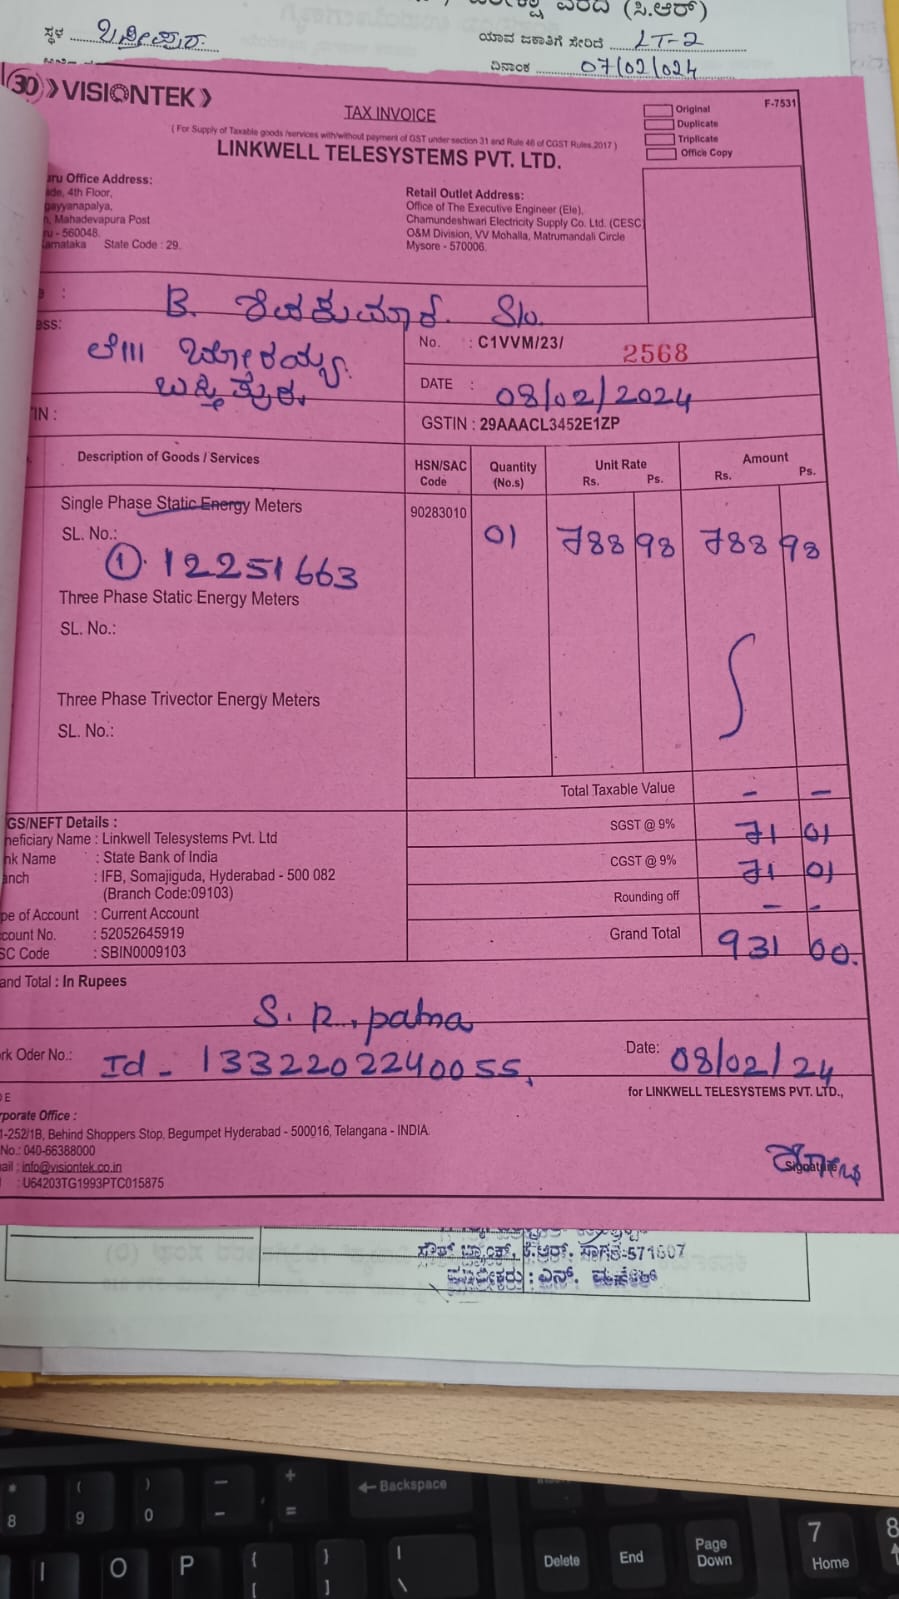 (ಸಿ.ಆರ್)
ಸ್ಥಳ
ಯಾವ ಜಕಾತಿಗೆ ಸೇರಿದೆ LT-2
ದಿನಾಂಕ 07/02/024
30 VISIONTEK
TAX INVOICE
( For Supply of Taxable goods /services with/without payment of GST under section 31 and Rule 46 of CGST Rules,2017 )
LINKWELL TELESYSTEMS PVT. LTD.
Original
Duplicate
Triplicate
Office Copy
F-7531
aru Office Address:
ade, 4th Floor,
gayyanapalya,
, Mahadevapura Post
ru - 560048.
arnataka State Code : 29.
Retail Outlet Address:
Office of The Executive Engineer (Ele),
Chamundeshwari Electricity Supply Co. Ltd. (CESC)
O&M Division, VV Mohalla, Matrumandali Circle
Mysore - 570006.
: B. ಶಿವಕುಮಾರ. S/o.
ess:
ಲೇ॥ ಬೋರಯ್ಯ
No. : C1VVM/23/ 2568
DATE : 08/02/2024
IN :
GSTIN : 29AAACL3452E1ZP
Description of Goods / Services
HSN/SAC Code
Quantity (No.s)
Unit Rate Rs. Ps.
Amount Rs. Ps.
Single Phase Static Energy Meters 90283010
SL. No.: 01 788 98 788 98
1. 12251663
Three Phase Static Energy Meters
SL. No.:
Three Phase Trivector Energy Meters
SL. No.:
Total Taxable Value - -
GS/NEFT Details :
neficiary Name : Linkwell Telesystems Pvt. Ltd
nk Name : State Bank of India
anch : IFB, Somajiguda, Hyderabad - 500 082
(Branch Code:09103)
pe of Account : Current Account
count No. : 52052645919
SC Code : SBIN0009103
SGST @ 9% 71 01
CGST @ 9% 71 01
Rounding off - -
Grand Total 931 00.
and Total : In Rupees
S. R. patna
rk Oder No.: Id - 1332202240055,
Date: 08/02/24
for LINKWELL TELESYSTEMS PVT. LTD.,
porate Office :
1-252/1B, Behind Shoppers Stop, Begumpet Hyderabad - 500016, Telangana - INDIA.
No.: 040-66388000
ail : info@visiontek.co.in
: U64203TG1993PTC015875
Signature
ಕೆ.ಆರ್. ಸಾಗರ-571607
: ಎನ್. ಮಹೇಶ್
Backspace
8 9 0 - =
I O P { [ } ] | \
Delete End Page Down 7 Home 8